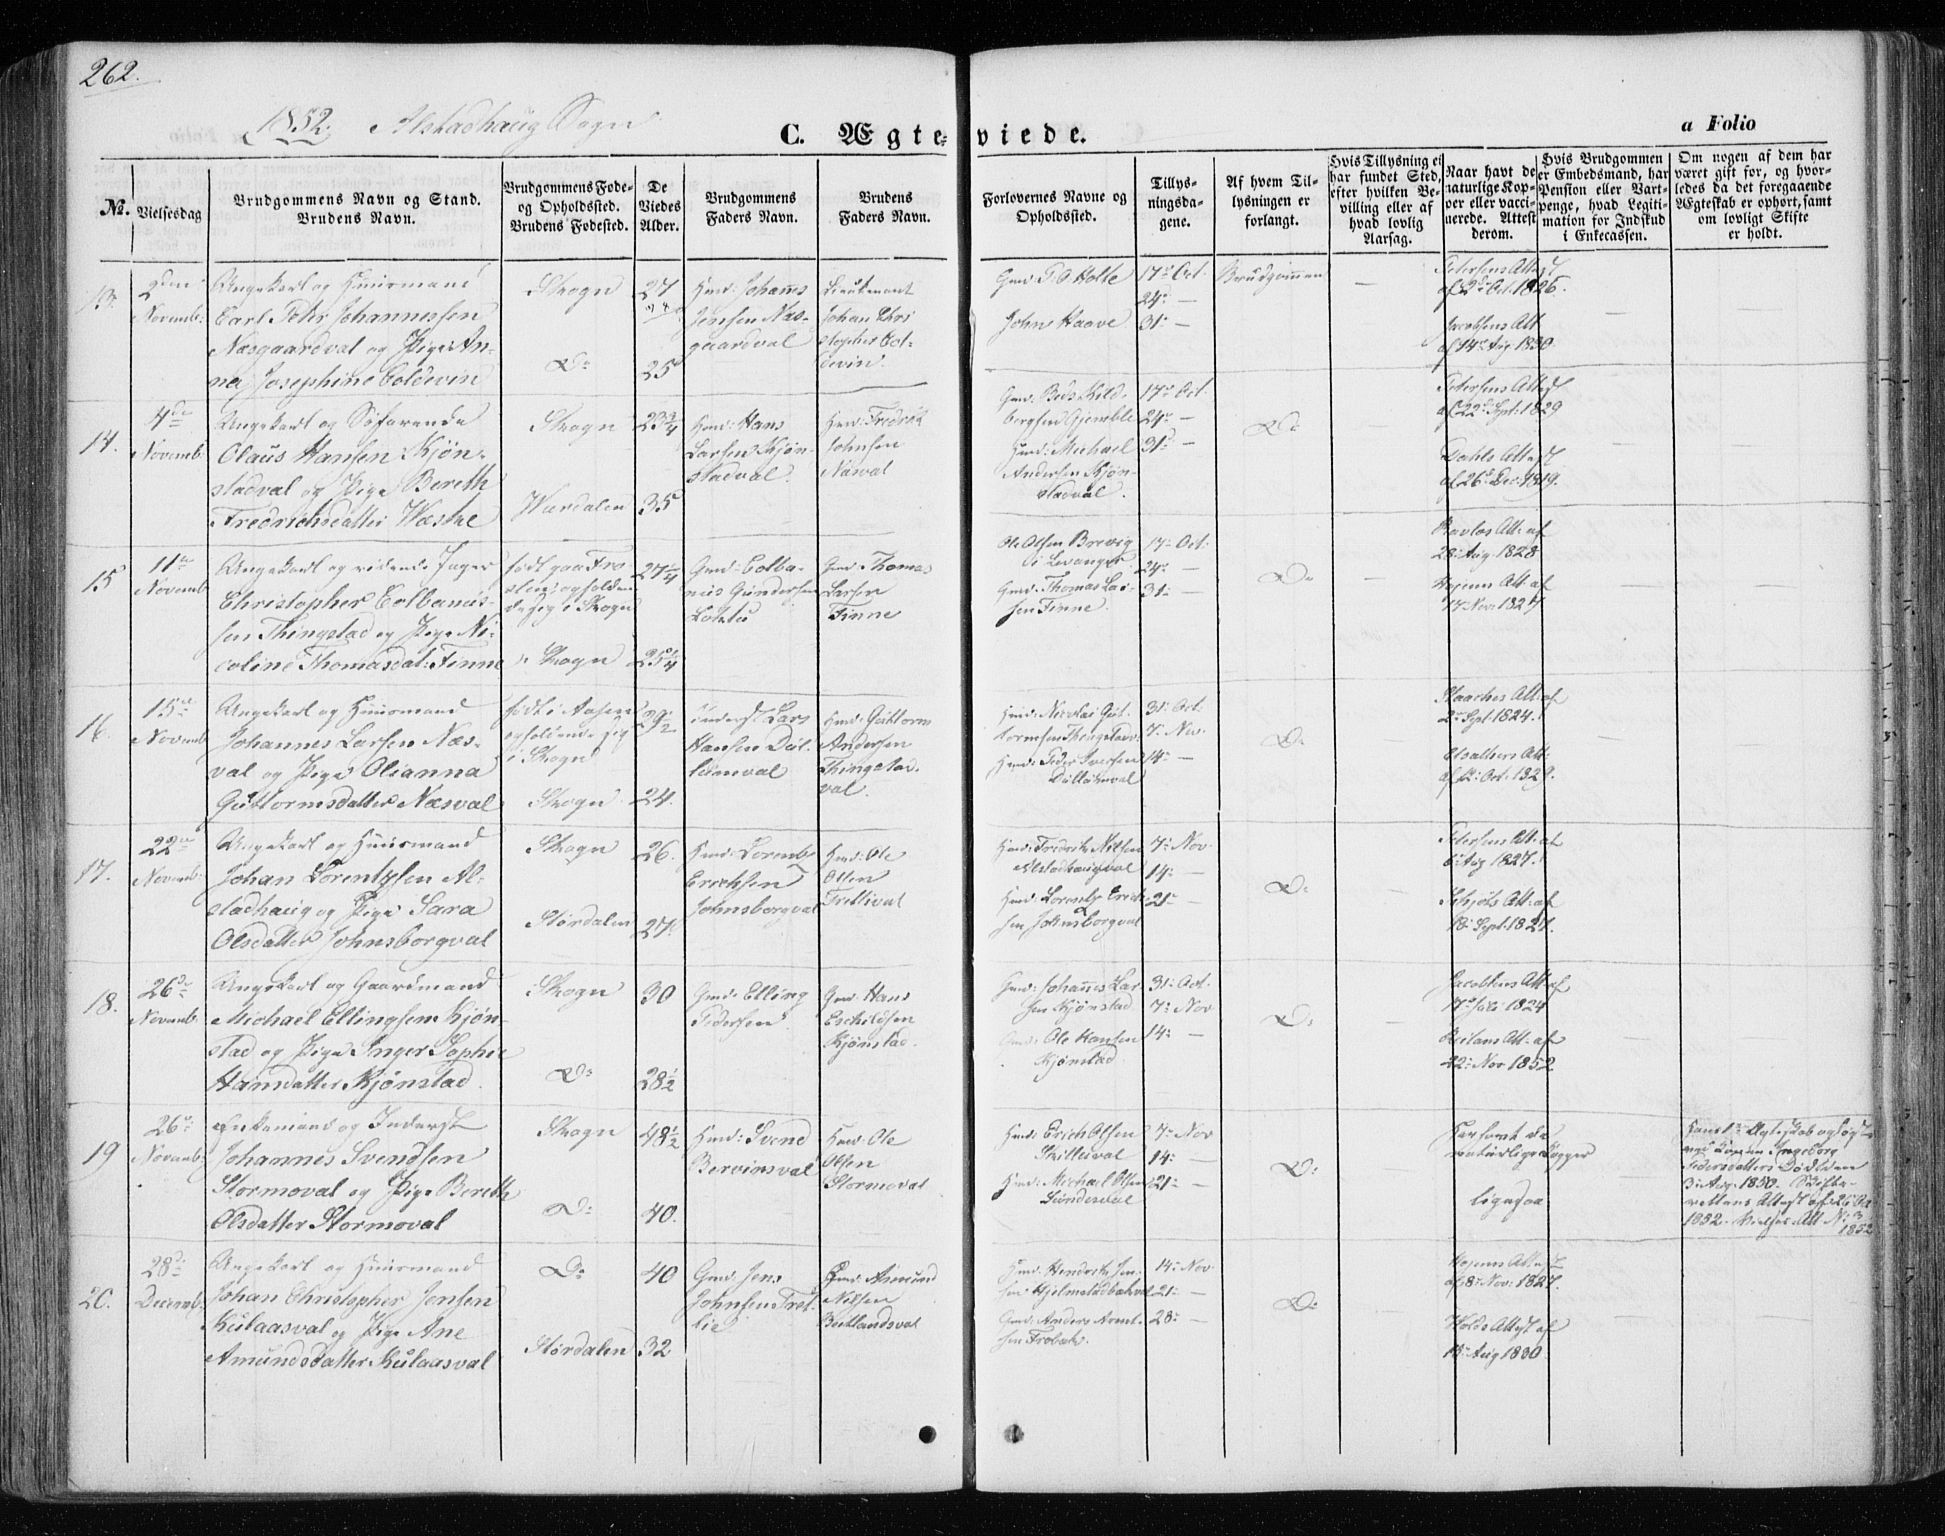 262.
1852. Alstadhaug Sogn
C. Ægteviede.
a Folio
No.
Vielsesdag
Brudgommens Navn og Stand.
Brudens Navn.
Brudgommens Føde-
og Opholdssted.
Brudens Fødested.
De
Viedes
Alder.
Brudgommens
Faders Navn.
Brudens
Faders Navn.
Forlovernes Navne og
Opholdssted.
Tillys-
ningsda-
gene.
Af hvem Til-
lysningen er
forlangt.
Hvis Tillysning ei
har fundet Sted,
efter hvilken Be-
villing eller af
hvad lovlig
Aarsag.
Naar havt de
naturlige Kop-
per eller vacci-
nerede. Attest
derom.
Hvis Brudgommen
er Embedsmand, har
Pension eller Vart-
penge, hvad Legiti-
mation for Indskud
i Enkecassen.
Om nogen af dem har
været gift før, og hvor-
ledes da det foregaaende
Ægteskab er ophørt, samt
om lovligt Skifte
er holdt.
13.
2den
Novemb:
Ungekarl og Huusmand
Carl Peter Johannessen
Næsgaardval og Pige An-
na Josephine Coldevin
Skogn
Do
27
25
Hmd: Johans
Jensen Næs-
gaardval
Lieutenant
Johan Chri
stopher Col-
devin.
Gmd: P O Holte
John Haave
17de Oct:
24de —
31: —
Brudgommen
—
Petersens Attest
af 2de Oct. 1826.
Jacobsens Att
af 14de Aug 1830.
—
14.
4de
Novemb:
Ungekarl og Søfarende
Olaus Hansen Kjøn-
stadval og Pige Bereth
Fredrichsdatter Wæske
Skogn
Wærdalen
23 3/4
35
Hmd: Hans
Larsen Kjøn-
stadval.
Hmd: Fredrik
Johnsen
Næsval
Gjemble
Hmd: Michael
Andersen Kjøn-
stadval.
17de Oct:
24de —
31: —
Do
Petersens Attest
af 22de Sept: 1829
Dahls Attest
af 26de Dec: 1819.
15
11te
Novemb
Ungekarl og ridende Jæger
Christopher Colbanus-
sen Thingstad og Pige Ni-
coline Thomasdat: Finne
født paa Fro
sten, opholden
de sig i Skogn
Skogn
27 1/4
25 1/4
Gmd: Colba-
nus Gundersen
Gmd: Thomas
Larsen
Finne
Ole Olsen Brevig
i Levanger
Gmd: Thomas Lar-
sen Finne.
17: Oct:
24: —
31: —
Do
—
28: Aug 1828
17: Nov: 1827
16.
15de
Novemb
Ungekarl og Huusmand
Johannes Larsen Næs-
val og Pige Olianna
Guttormsdatter Næsval
født i Aasen
opholdende sig
i Skogn
Skogn.
29 1/2
24.
Inderst Lars
Hansen
Hmd: Guttorm
Andersen
Thingstad-
val.
Hmd: Nicolai Gut-
tormsen Thingstadv:
Hmd: Peder Iversen
31: Oct:
7: Nov.
14: —
Do
—
2de Sept 1824.
Oct: 1829.
17.
22de
Novemb:
Ungekarl og Huusmand
Johan Lorentzsen Al-
stadhaug og Pige Sara
Olsdatter Johnsborgval
Skogn
Størdalen
26.
27.
Hmd: Lorentz
Erichsen
Johnsborgval
Hmd: Ole
Olsen
Trettival
Hmd: Fredrik Nilsen
Alstadhaugval
Hmd: Lorentz Erich-
sen Johnsborgval
7: Nov.
14: —
21: —
Do
—
Petersens Att: af
6: Aug 1827.
Schjøts Att: af
18: Sept: 1827.
—
18.
26de
Novemb:
Ungekarl og Gaardmand
Michael Ellingsen Kjøn-
stad og Pige Inger Sophie
Hansdatter Kjønstad.
Skogn
Do
30
28 1/2
Gmd: Elling
Pedersen
Gmd: Hans
Eschildsen
Kjønstad.
Gmd: Johannes Lar-
sen Kjønstad
Gmd: Ole Hansen
Kjønstad
31: Oct.
7: Nov
14: —
Do
Jacobsens Att: af
17de Juli 1824
22: Nov 1852
19
26:
Novemb:
Enkemand og Inderst
Johannes Svendsen
Stormoval og Pige Bereth
Olsdatter Stormoval
Skogn
Do
48 1/2
40.
Hmd: Svend
Bervinsval
Hmd: Ole
Olsen
Stormoval
Hmd: Erich Olsen
Skillesval
Hmd: Michael Olsen
Sundesval
7: Nov
14: —
21: —
Do
Har havt de
naturlige Kopper
ligesaa
Hans 1ste Ægteskab ophøgt
ved Konen Ingeborg
Pedersdatters Død den
3: Aug 1850. Skifte-
rettens Attest af 26 Oct
1852. Vielses Att No 3
1852
20.
28de
Decemb:
Ungekarl og Huusmand
Johan Christopher Jensen
Kulaasval og Pige Ane
Amundsdatter Kulaasval
Do
Størdalen
40
32
Gmd: Jens
Johnsen Tret-
lie
Gmd: Amund
Nilsen
Beitlandsval
Hmd: Hendrik Jen-
sen Hjelmstadbakval
Gmd: Anders Arnt-
sen Trobak.
14: Nov.
21: —
28: —
Do
—
af 8: Nov: 1827.
Holds Attest af
13: Aug 1830.